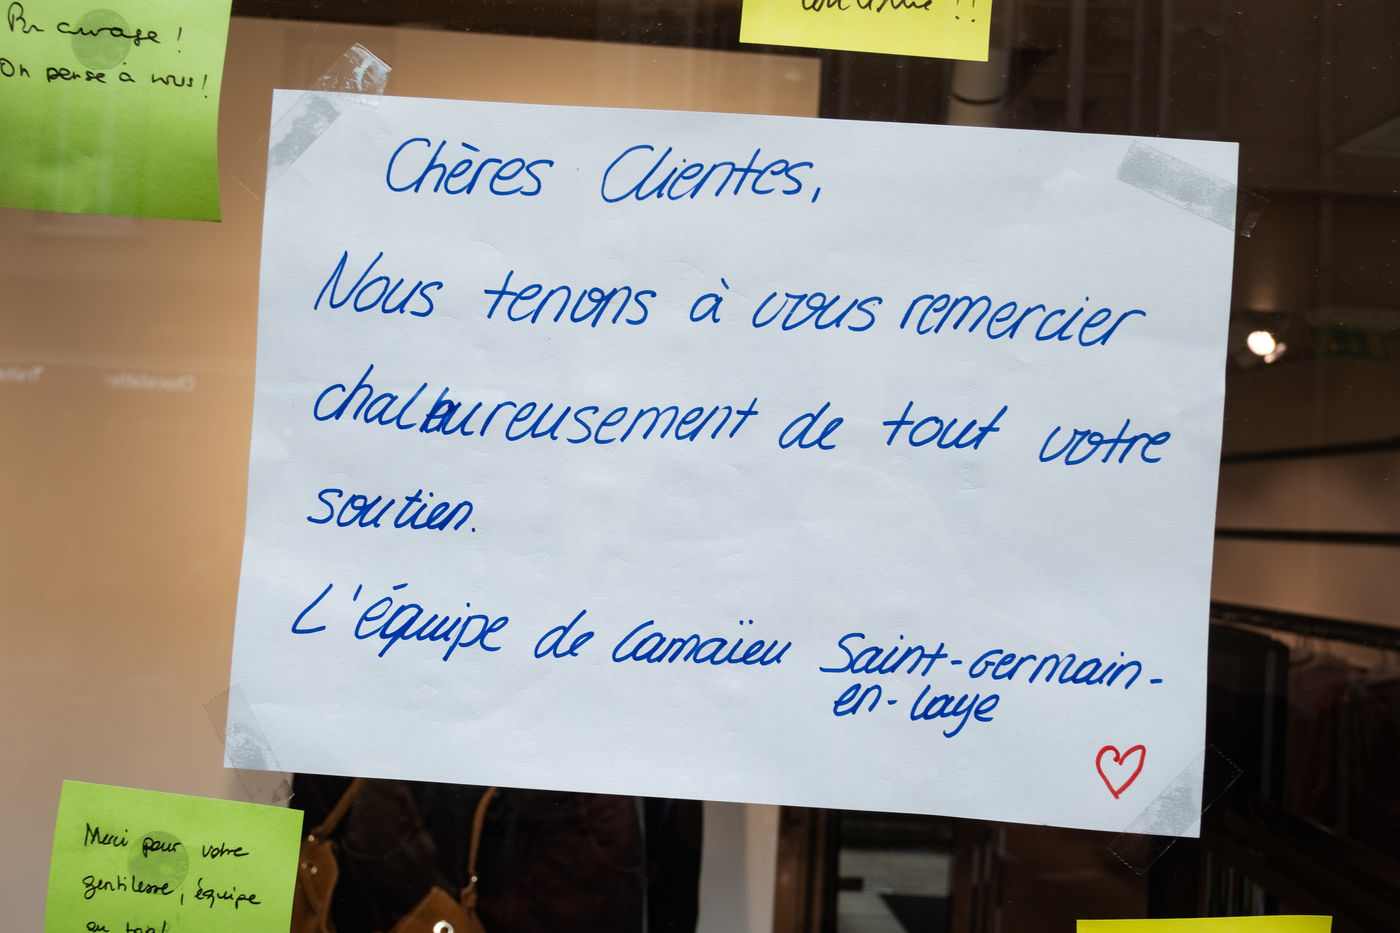 Bon courage !
On pense à vous !
continue !!
Chères Clientes,
Nous tenons à vous remercier
chaleureusement de tout votre
soutien.
L'équipe de Camaïeu Saint-Germain-
en-Laye
Merci pour votre
gentillesse, équipe
au top!
Chocolatier
Traiteur